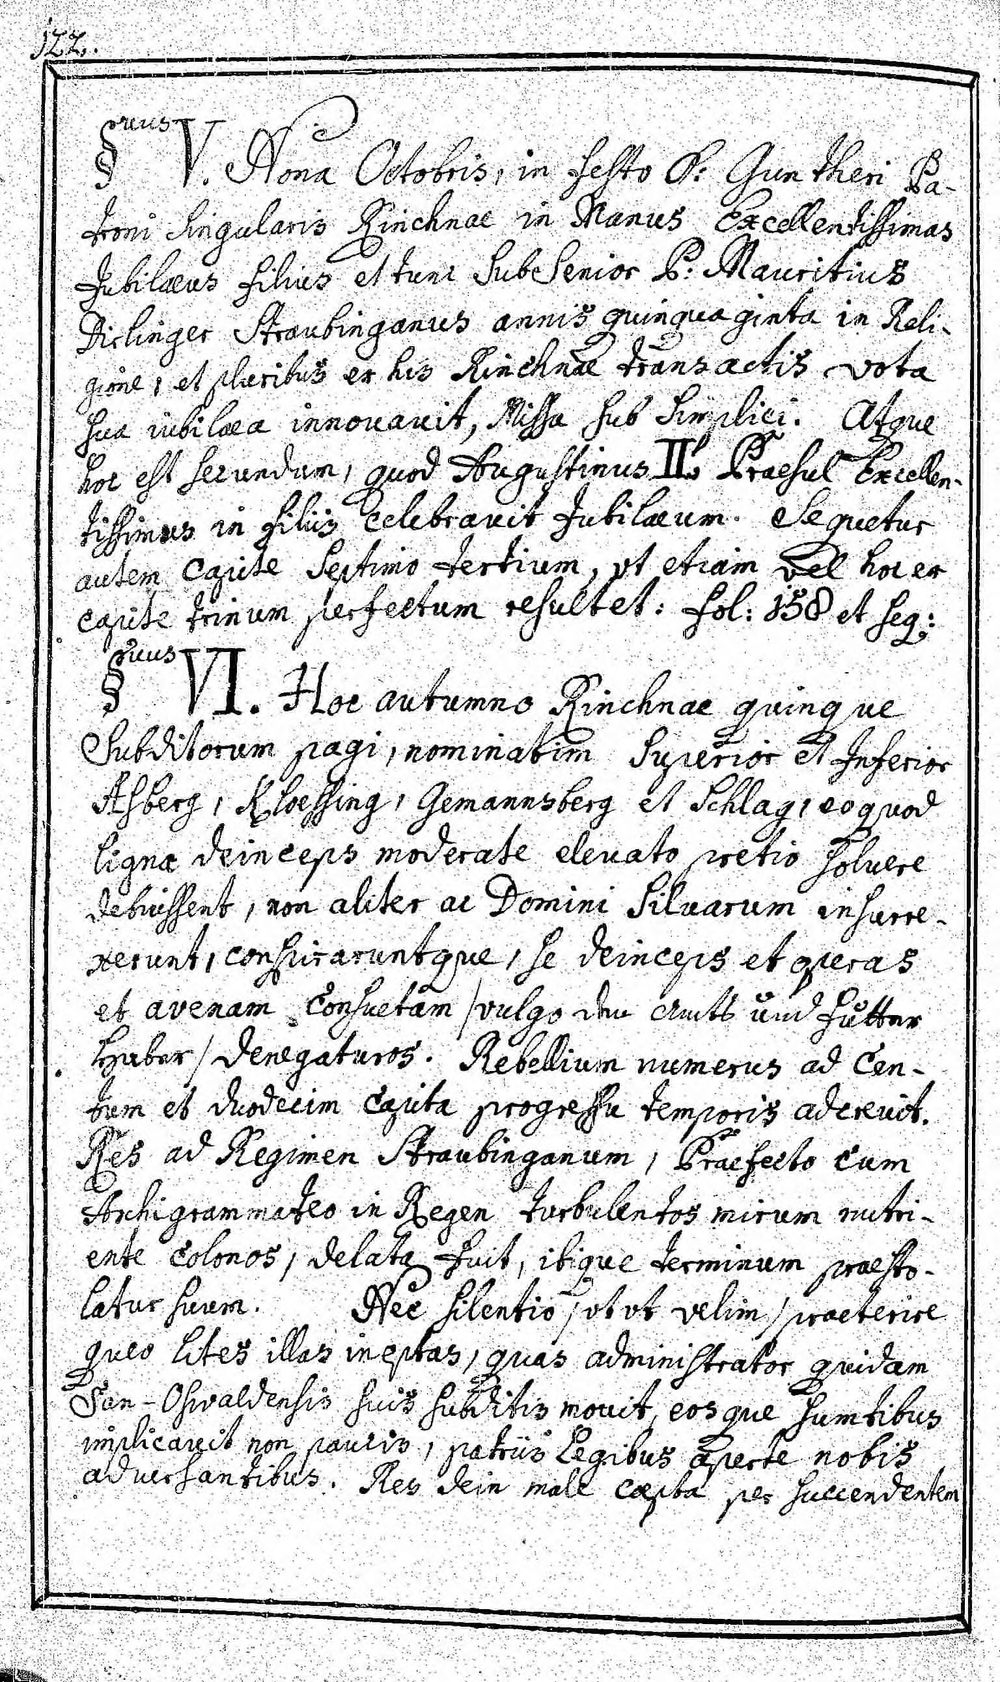 122.
§phus V. Nona Octobris, in festo S: Guntheri Pa-
troni singularis Rinchnae in Manus Excellentissimas
Jubilaeus filius et tunc SubSenior P: Mauritius
Dirlinger Straubinganus annis quinquaginta in Reli-
gione, et pluribus ex his Rinchnae transactis vota
sua iubilaea innovavit, Missa sub simplici. Atque
hoc est secundum, quod Augustinus II. Praesul Excellen-
tissimus in filiis celebravit Jubilaeum. Sequetur
autem capite septimo tertium, ut etiam vel hoc ex
capite trinum perfectum resultet: fol: 158 et seq:
§phus VI. Hoc autumno Rinchnae quinque
Subditorum pagi, nominatim Superior et Inferior
Asberg, Kloessing, Gemannsberg et Schlag, eo quod
ligna deinceps moderate elevato pretio solvere
debuissent, non aliter ac Domini Silvarum insurre-
xerunt, conspiraruntque, se deinceps et operas
et avenam consuetam /vulgo den Amts und Futter
Haber/ denegaturos. Rebellium numerus ad Cen-
tum et duodecim capita progressu temporis adcrevit.
Res ad Regimen Straubinganum, Praefecto cum
Archigrammateo in Regen turbulentos mirum nutri-
ente colonos, delata fuit, ibique terminum praesto-
latur suum. Nec silentio /ut ut velim/ praeterire
queo lites illas ineptas, quas administrator quidam
San-Oswaldensis suis subditis movit, eosque sumtibus
implicavit non paucis, patriis Legibus aperte nobis
adversantibus. Res dein male caepta per succendentem